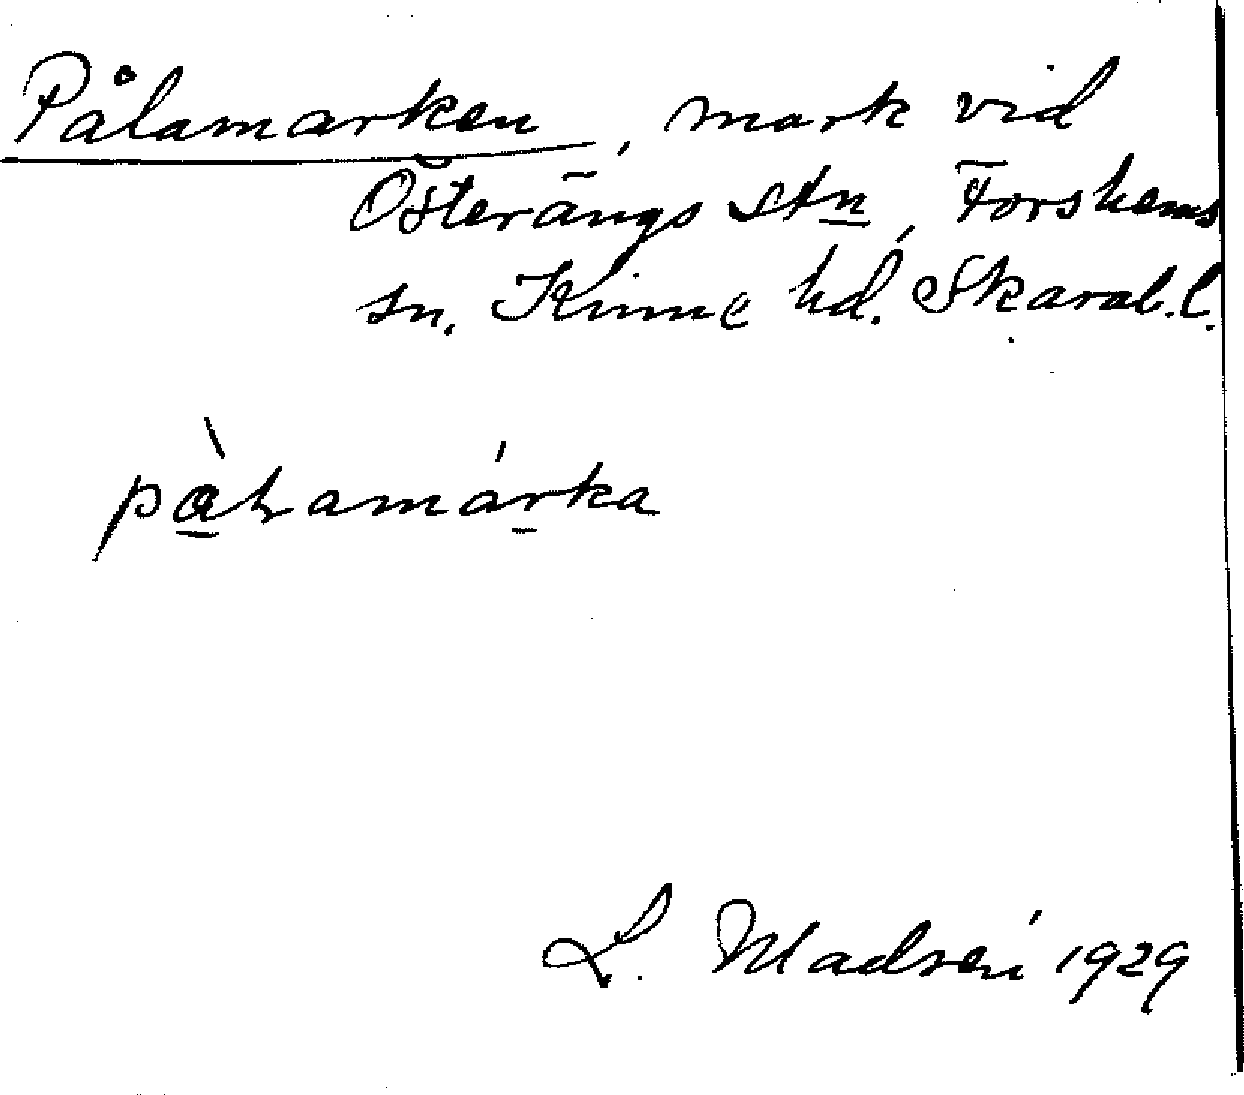 Pålamarken, mark vid
Österängs stn, Forshems
sn. Kinne hd. Skarab. l.
L. Madsén 1929